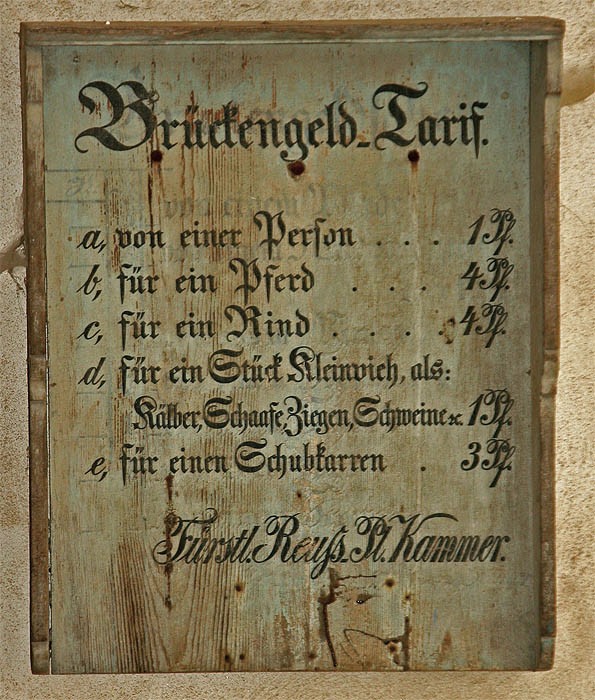 Brückengeld-Tarif.
a, von einer Person . . . 1 Pf.
b, für ein Pferd . . . 4 Pf.
c, für ein Rind . . . . 4 Pf.
d, für ein Stück Kleinvieh, als:
Kälber, Schaafe, Ziegen, Schweine ꝛc. 1 Pf.
e, für einen Schubkarren . 3 Pf.
Fürstl. Reuß. Pl. Kammer.